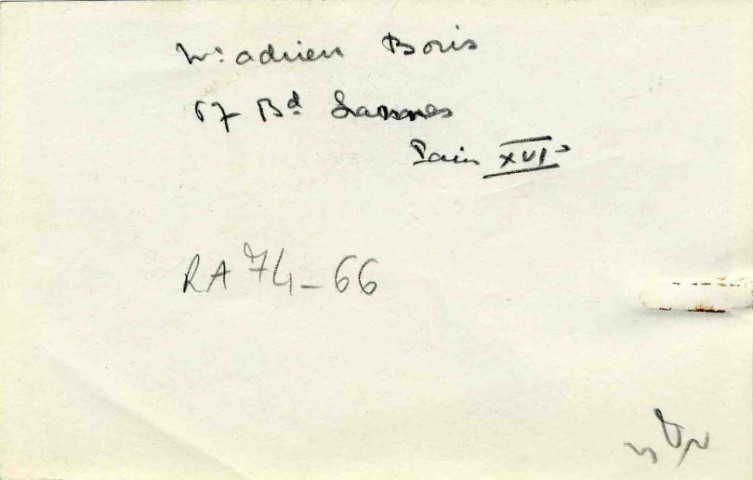 Mr adrien Boris
67 Bd Lannes
Paris XVIe
RA 74-66